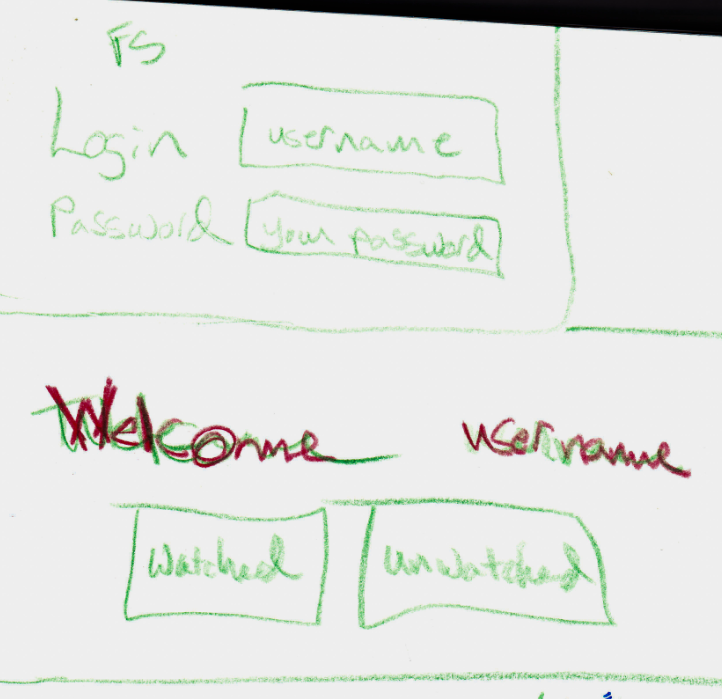 FS
Login username
Password your password
Welcome username
Watched unwatched